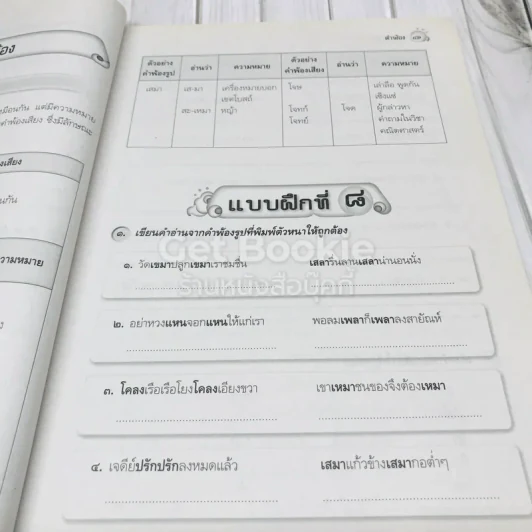 คำพ้อง
ตัวอย่าง คำพ้องรูป อ่านว่า ความหมาย ตัวอย่าง คำพ้องเสียง อ่านว่า ความหมาย
เสมา เส-มา เครื่องหมายบอก เขตโบสถ์ โจษ เล่าลือ พูดกัน เซ็งแซ่
สะ-เหมา หญ้า โจทก์ โจด ผู้กล่าวหา
โจทย์ คำถามในวิชา คณิตศาสตร์
แบบฝึกที่ ๘
๑. เขียนคำอ่านจากคำพ้องรูปที่พิมพ์ตัวหนาให้ถูกต้อง
๑. วัดเขมาปลูกเขมาเราชมชื่น เสลารื่นลานเสลาน่านอนนั่ง
๒. อย่าทวงแหนจอกแหนให้แก่เรา พอลมเพลาก็เพลาลงสายัณห์
๓. โคลงเรือเรือโยงโคลงเอียงขวา เขาเหมาชนของจึงต้องเหมา
๔. เจดีย์ปรักปรักลงหมดแล้ว เสมาแก้วข้างเสมากอต่ำๆ
Get Bookie
ร้านหนังสือบุ๊คกี้
มือนกัน แต่มีความหมาย
คำพ้องเสียง ซึ่งมีลักษณะ
ความหมาย